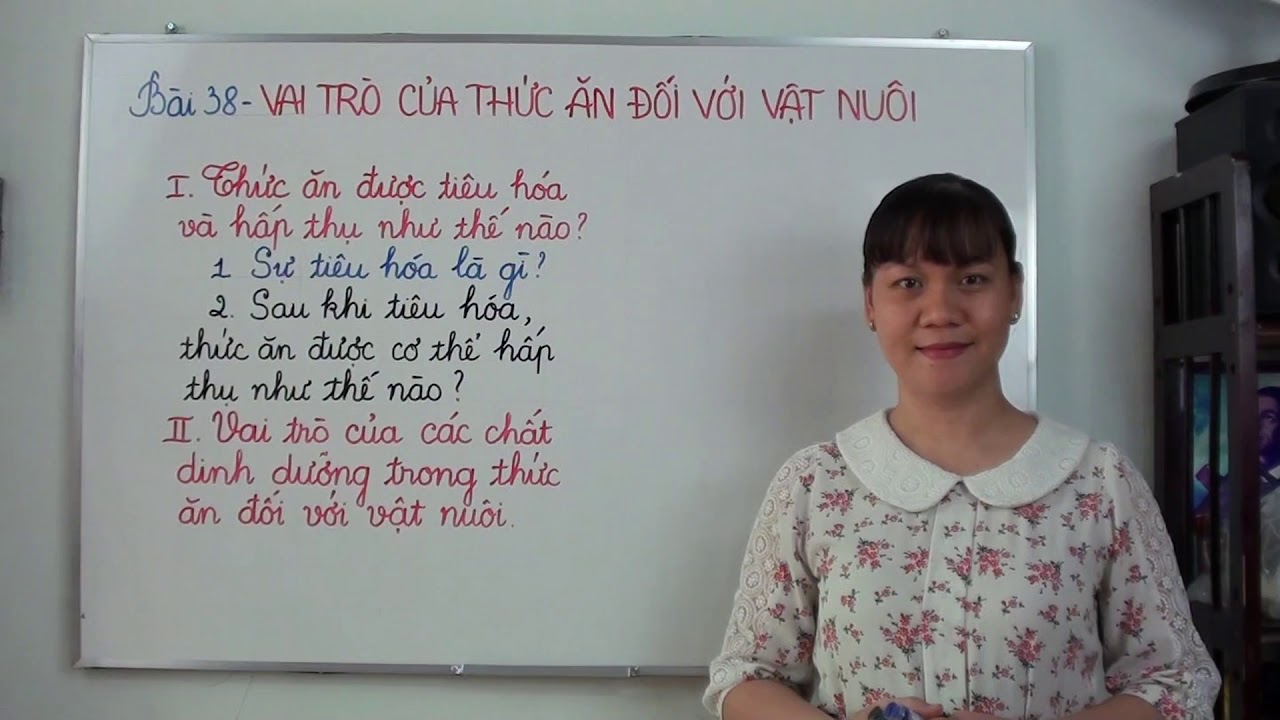 Bài 38 - VAI TRÒ CỦA THỨC ĂN ĐỐI VỚI VẬT NUÔI
I. Thức ăn được tiêu hóa
và hấp thụ như thế nào?
1. Sự tiêu hóa là gì?
2. Sau khi tiêu hóa,
thức ăn được cơ thể hấp
thụ như thế nào?
II. Vai trò của các chất
dinh dưỡng trong thức
ăn đối với vật nuôi.